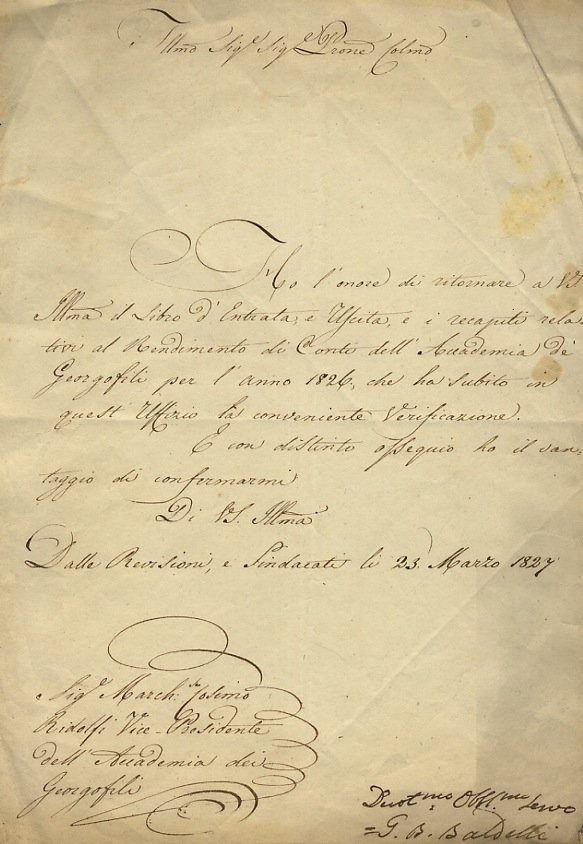 Illmo Sigr. Sigr. Prone Colmo
Ho l'onore di ritornare a VS.
Illma il Libro d'Entrata, e Uscita, e i recapiti rela=
tivi al Rendimento di Conti dell'Accademia de'
Georgofili per l'anno 1826, che ha subito in
quest'Uffizio la conveniente Verificazione.
E con distinto ossequio ho il van=
taggio di confermarmi
Di VS. Illma
Dalle Revisioni, e Sindacati li 23. Marzo 1827
Sigr. March: Cosimo
Ridolfi Vice-Presidente
dell'Accademia dei
Georgofili
Devotmo Obblmo Servo
=G. B. Baldelli